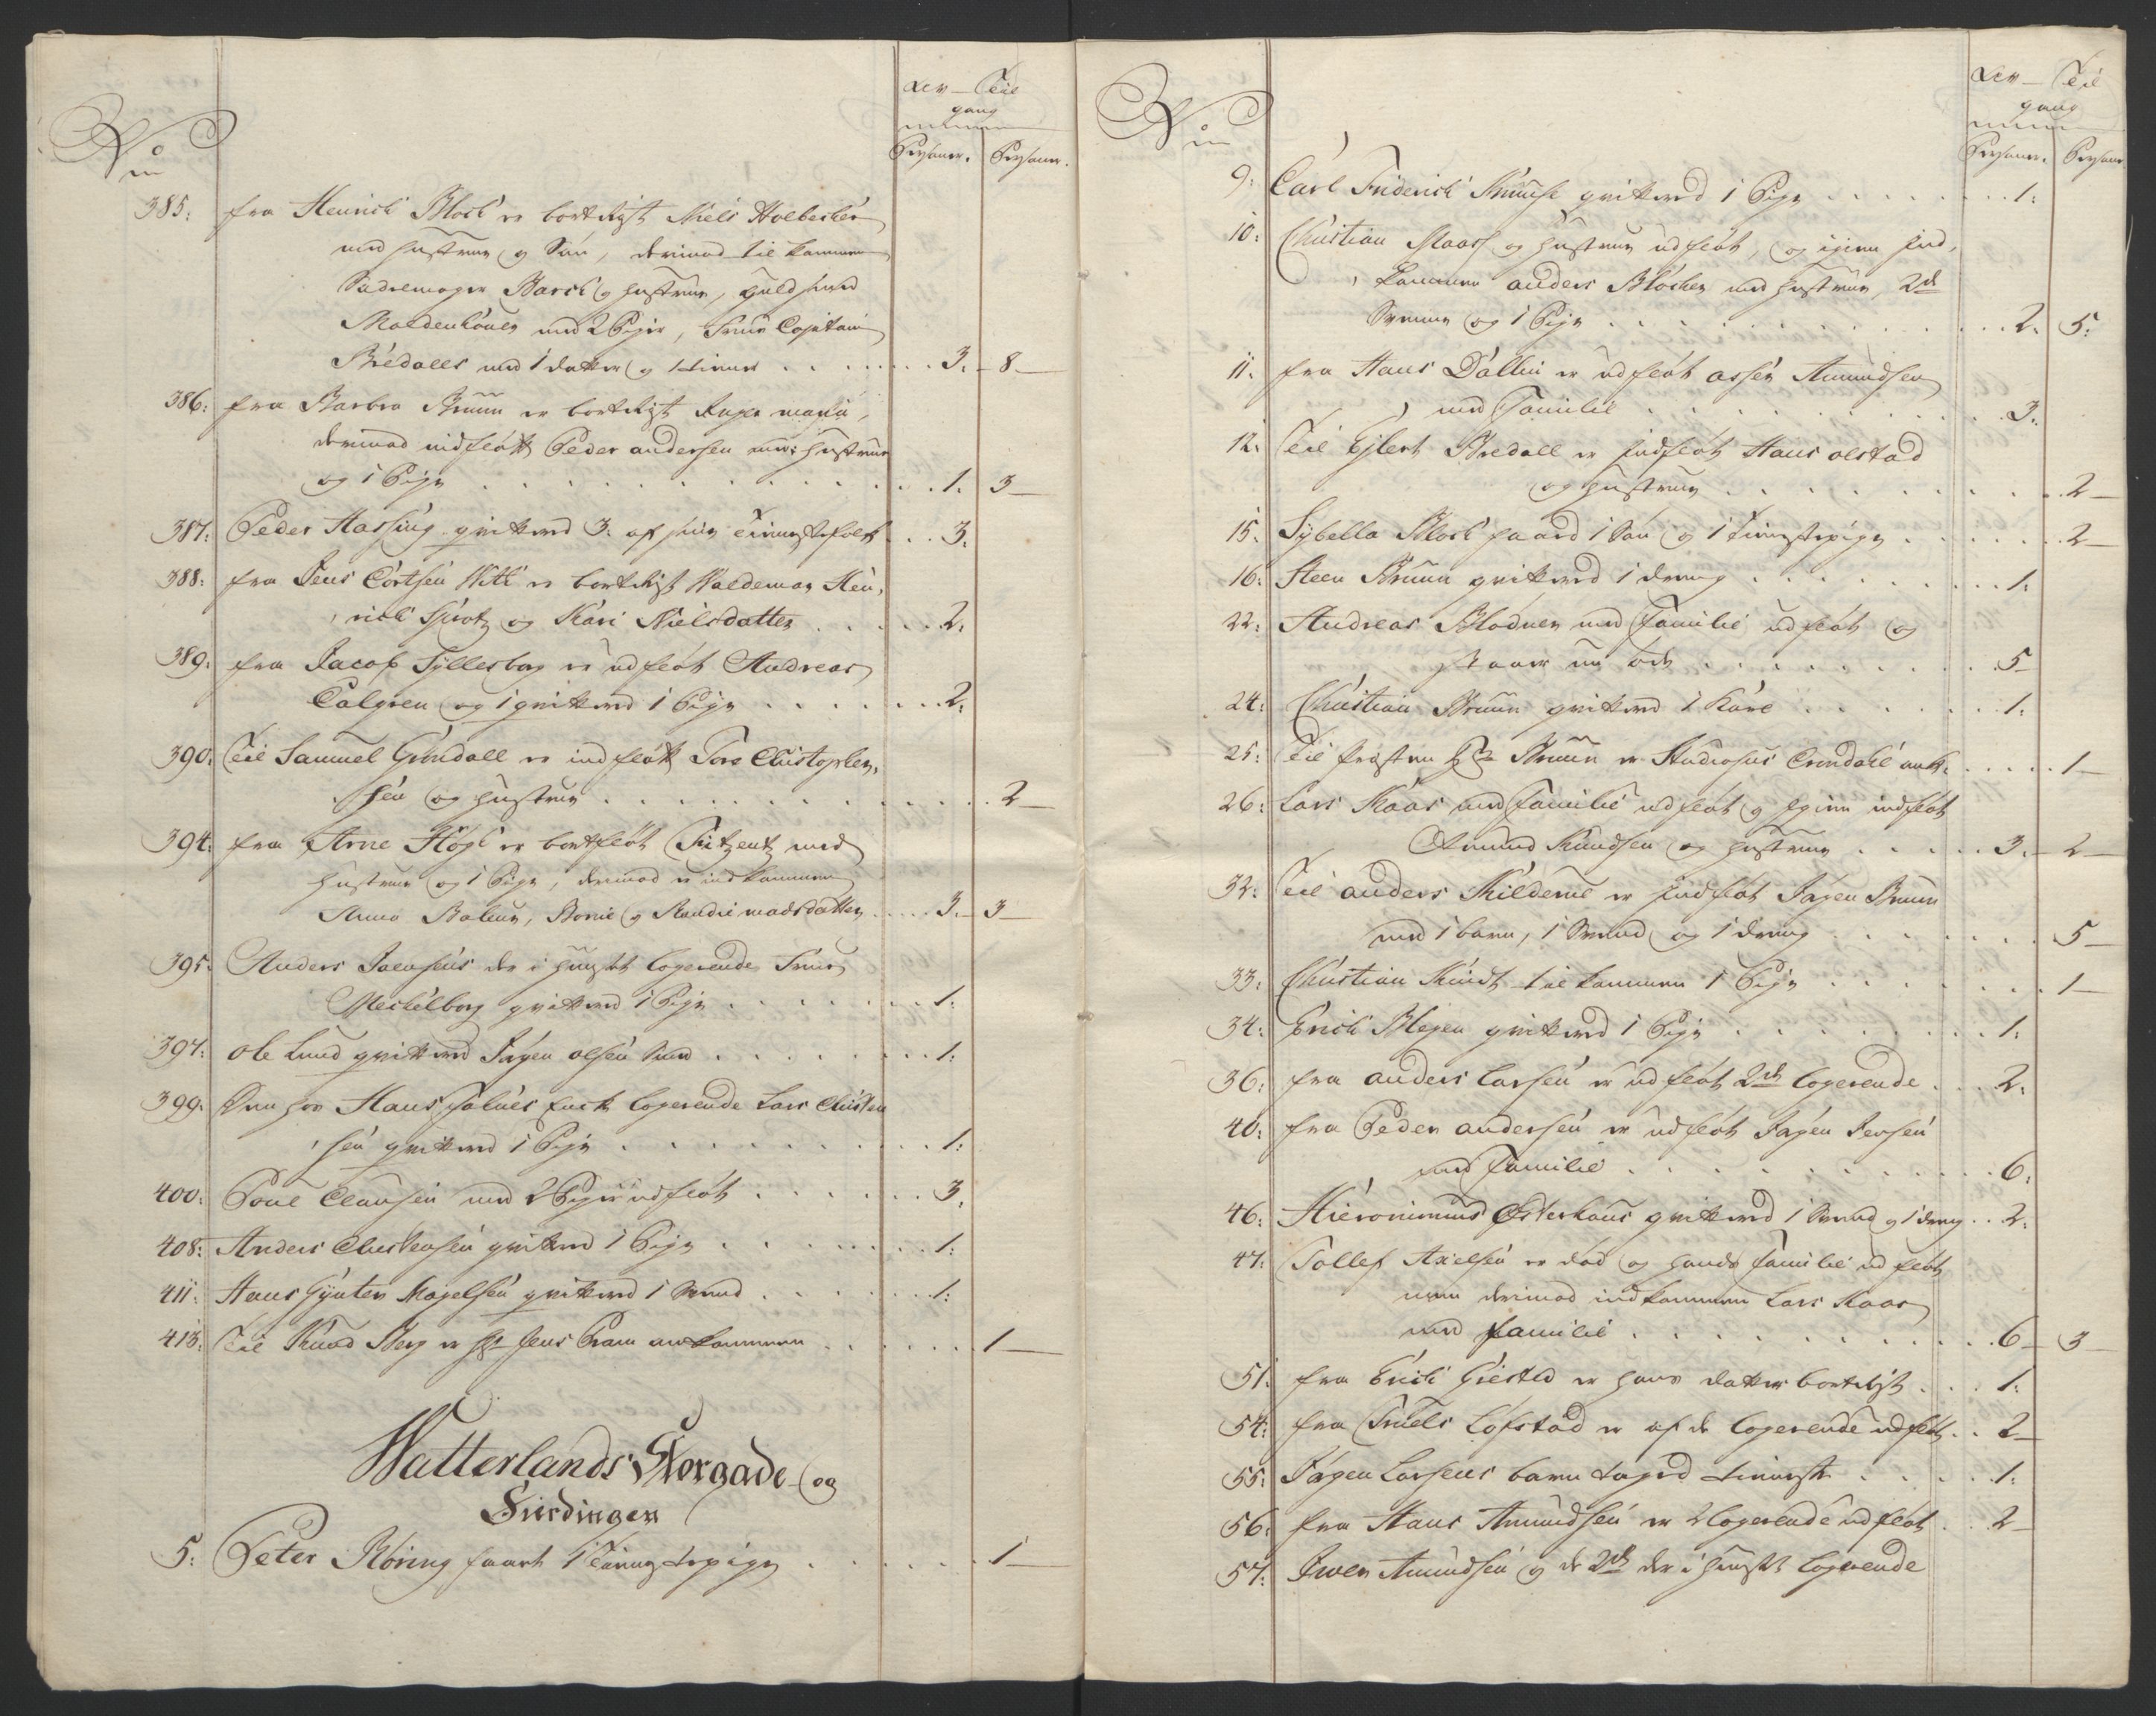 No
Af- Til
gang
Persohner. Persohner.
385: fra Henrich Bloch er bortrejst Niels Holbecher
med hustrue og Søn, derimod til kommen
Sadelmager Barch og hustrue, Guldsmed
Moldenhauer med 2 Piger, Frue Capitain
Bredalls med 1 datter og tienner 3. 8
386: fra Barbra Bruun er bortrejst Inger maria,
derimod indfløtt Peder andersen med hustrue
og 1 Pige 1. 3
387: Peder Hassing qvitered 3. af sine tienestefolk 3.
388: fra Jens Cortsen Witt er bortrejst Waldemar Hen-
rich og Kari Nielsdatter 2.
389: fra Jacob Syllesborg er udfløt Andreas
Calgren og qvitered 1 Pige 2.
390: Til Samuel Gundall er indfløtt Tore Christophersen
og hustrue 2
394: fra Arne Høgh er bortfløt med
hustrue og 1 Pige, derimod er indkommen
Anna og Randi madsdatter 3. 3
395: Anders Joensens der i huuset logerende Frue
Meckelborg qvitered 1 Pige 1:
397: ole Lund qvitered Jørgen olsen 1:
399: Den hos Hans logerende Lars Christen-
sen qvitered 1 Pige 1:
400: Poul Clausen med 2 Piger udfløt 3.
408: Anders Christensen qvitered 1 Pige 1:
411: Hans Gynter Magelsen qvitered 1 Svend 1:
413: Til Knud Berg er Hr Jens Pram ankommen 1
Watterlands Storgade og
Fierdingen
5: Peter Röring faaet 1 tieneste pige 1
No
Af- Til
gang
Persohner. Persohner
9: Carl Friderich Kruuse qvitered 1 Pige 1:
10: Christian Maas og hustrue udfløt, og igien ind-
kommen anders Blöcher med hustrue, 2de
Svenne og 1 Pige 2. 5.
11: fra Hans Dallin er udfløt asser Amundsen
med Familie 3.
12: Til Ejlert Bredall er indfløt Hans olstad
og hustrue 2
15: Sybella Bloch faaed 1 Søn og 1 tienestepige 2
16: Steen Bruun qvitered 1 dreng 1:
22: Andreas Blodner med Familie udfløt og
staaer nu øde 5
24: Christian Bruun qvitered 1 Karl 1:
25: Til Præsten Hr Bruun er Studiosus ank: 1
26: Lars Kaas med Familie udfløt og igien indfløt
Amund Knudsen og hustrue 3. 2
32: Til anders Kilderne er indfløt Jørgen Bruun
med 1 barn, 1 Svend og 1 dreng 5
33: Christian Kindt tilkommen 1 Pige 1
34: Erich Blegen qvitered 1 Pige 1:
36: fra anders Larsen er udfløt 2de logerende 2.
40: fra Peder andersen er udfløt Jørgen Jensen
med Familie 6.
46: Hieronimus Osterhaus qvitered 1 Svend og 1 dreng 2.
47: Tollef Axelsen er død og hands Familie udfløt
men derimod indkommen Lars Kaas
med Familie 6 3
51: fra Erich Giested er hans datter bortrejst 1:
54: fra Truels Lofstad er af de logerende udfløt 2
55: Jørgen Larsens barn taget tieneste 1:
56: fra Hans Amundsen er 2 logerende udfløt 2
57: Iwer Amundsen og de 2de der i huuset logerende